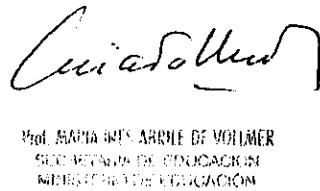 Prof. MARIA INES ABRILE DE VOLLMER
SECRETARIA DE EDUCACIÓN
MINISTERIO DE EDUCACIÓN